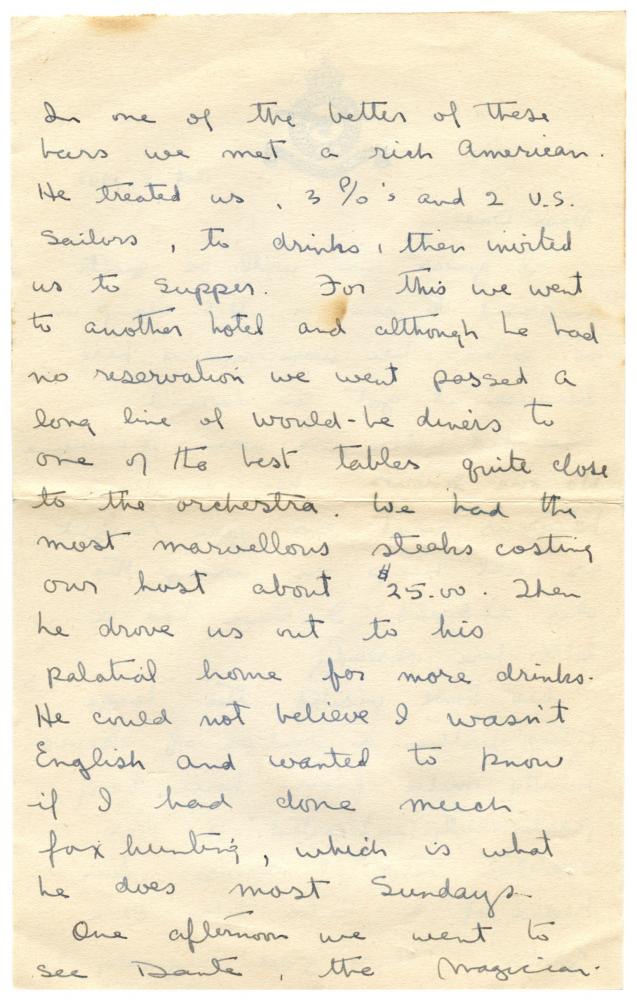 In one of the better of these
bars we met a rich American.
He treated us, 3 P/O's and 2 U.S.
Sailors, to drinks, then invited
us to supper. For this we went
to another hotel and although he had
no reservation we went passed a
long line of would-be diners to
one of the best tables quite close
to the orchestra. We had the
most marvellous steaks costing
our host about $25.00. Then
he drove us out to his
palatial home for more drinks.
He could not believe I wasn't
English and wanted to know
if I had done much
fox hunting, which is what
he does most Sundays.
One afternoon we went to
see Dante, the Magician.